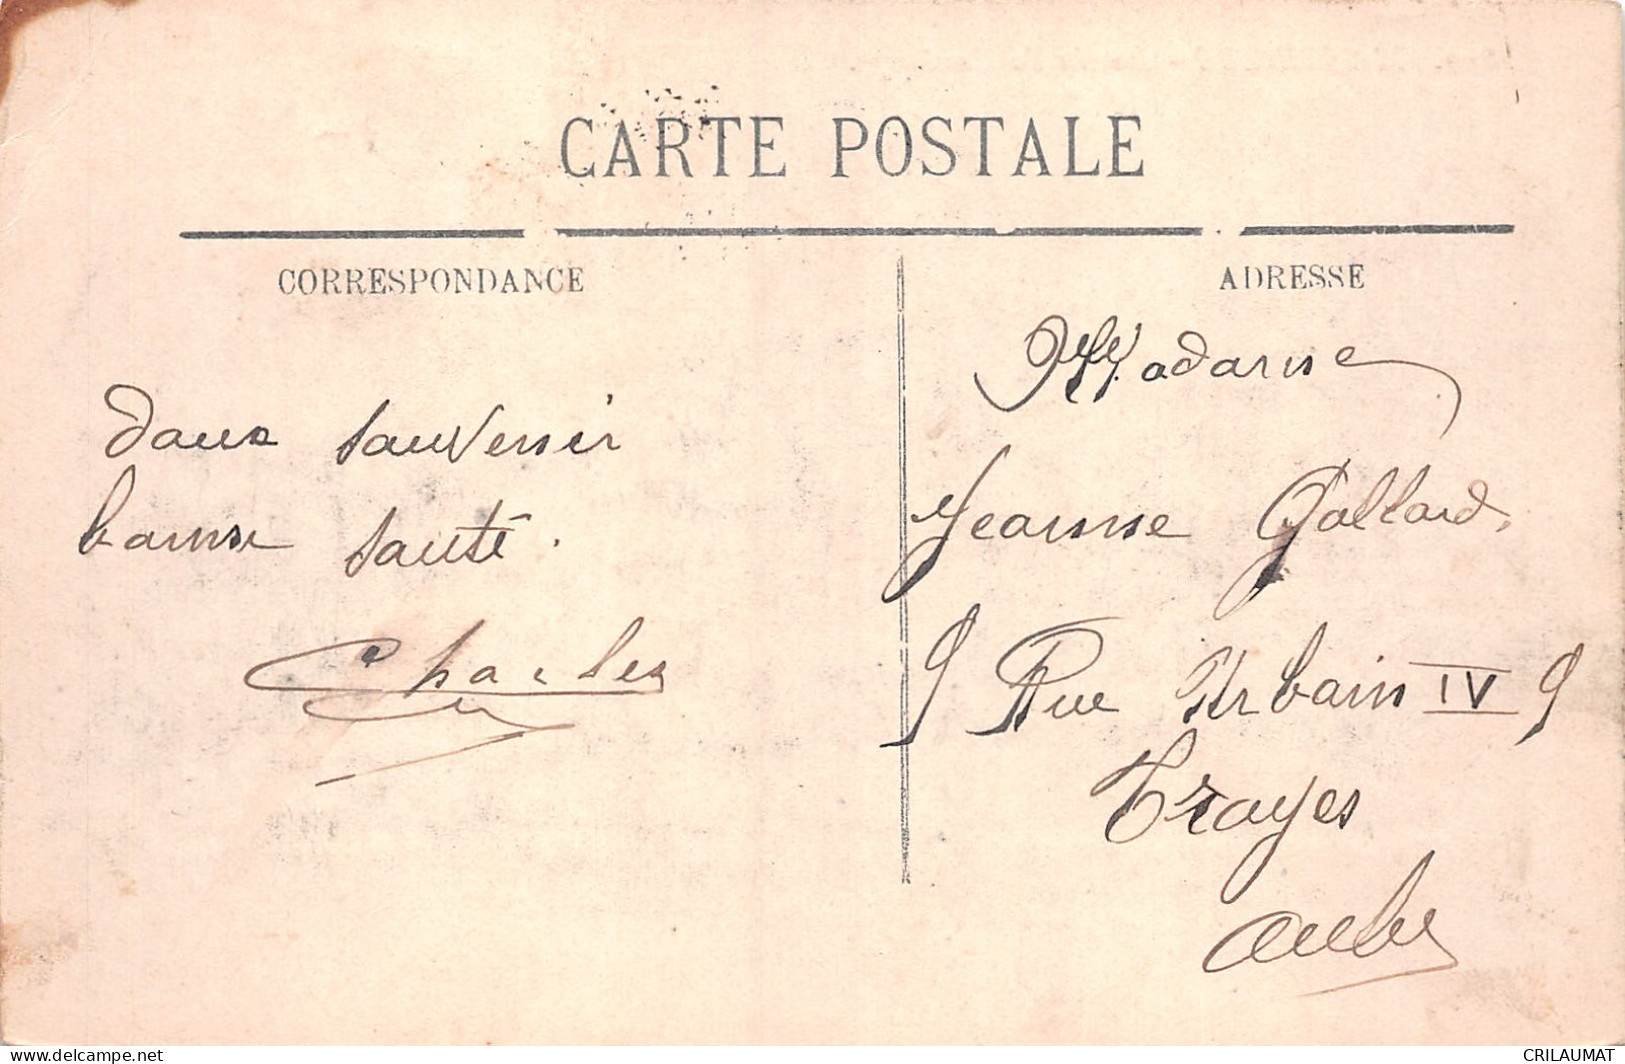 CARTE POSTALE
CORRESPONDANCE
ADRESSE
doux souvenir
bonne santé.
Charles
Madame
Jeanne Gallard,
9 Rue Urbain IV 9
Troyes
Aube
www.delcampe.net
CRILAUMAT